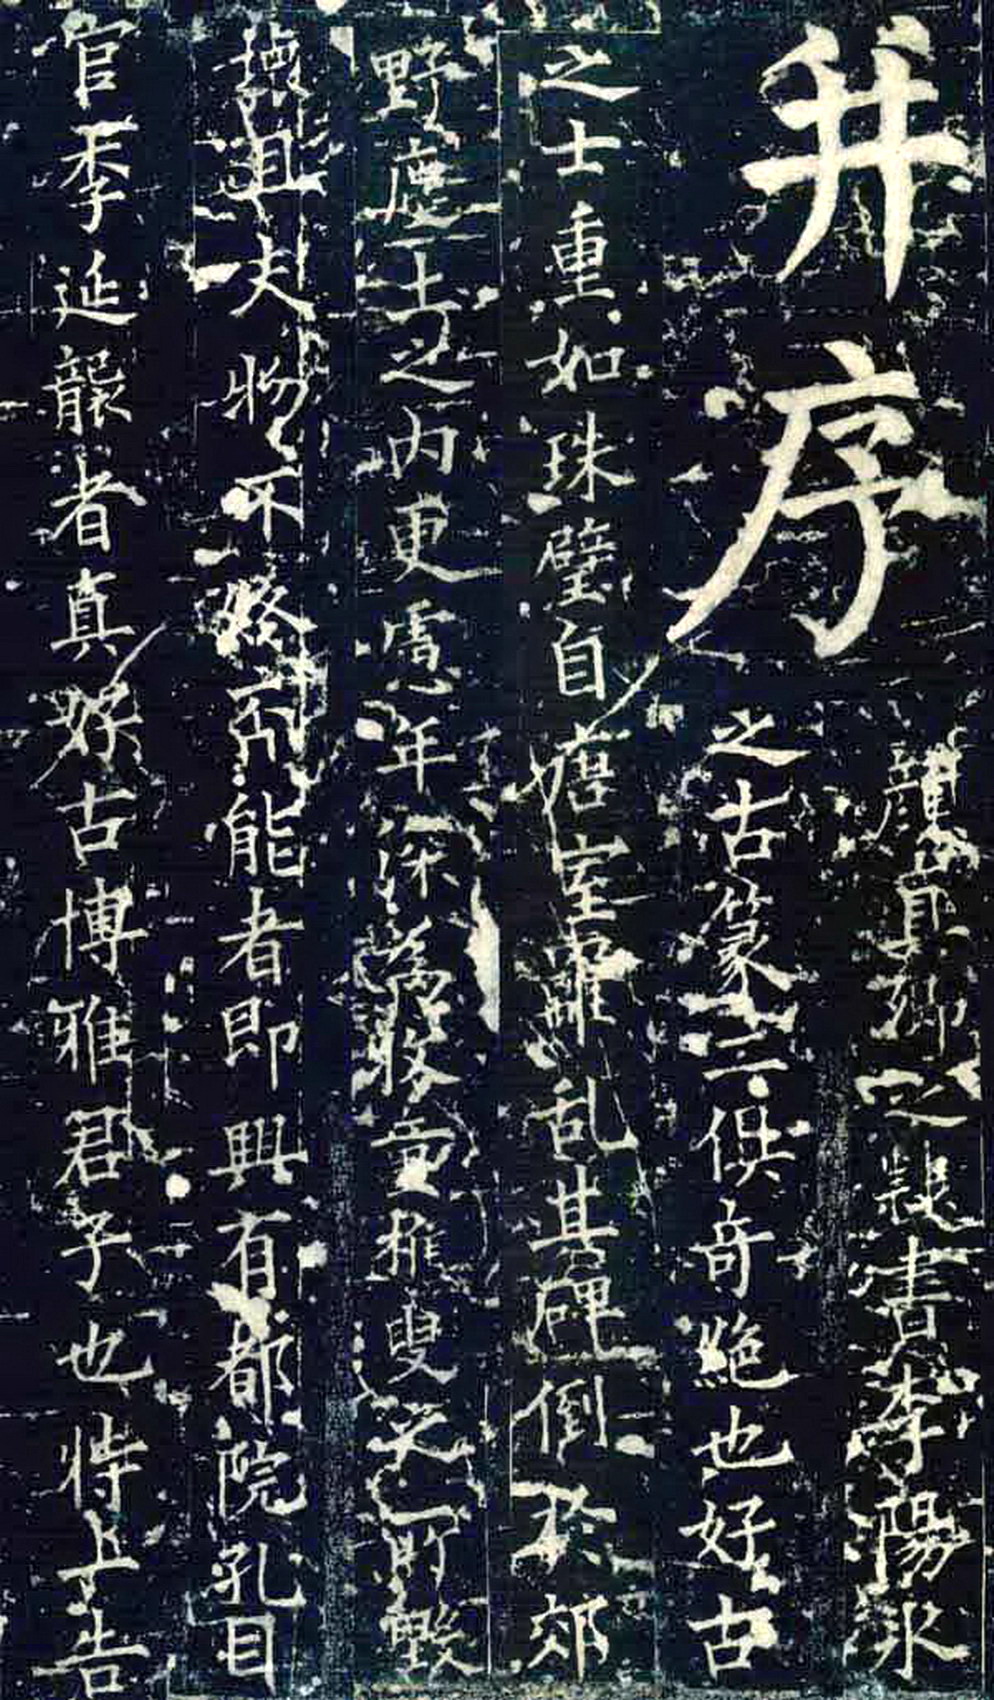 并序
顏真卿之隸書李陽冰
之古篆二俱奇絕也好古
之士重如珠璧自唐室離乱其碑倒於郊
野塵土之內更慮年深為牧童樵叟之所毀
壞且夫物不終否能者即興有都院孔目
官李延襲者真好古博雅君子也特上告